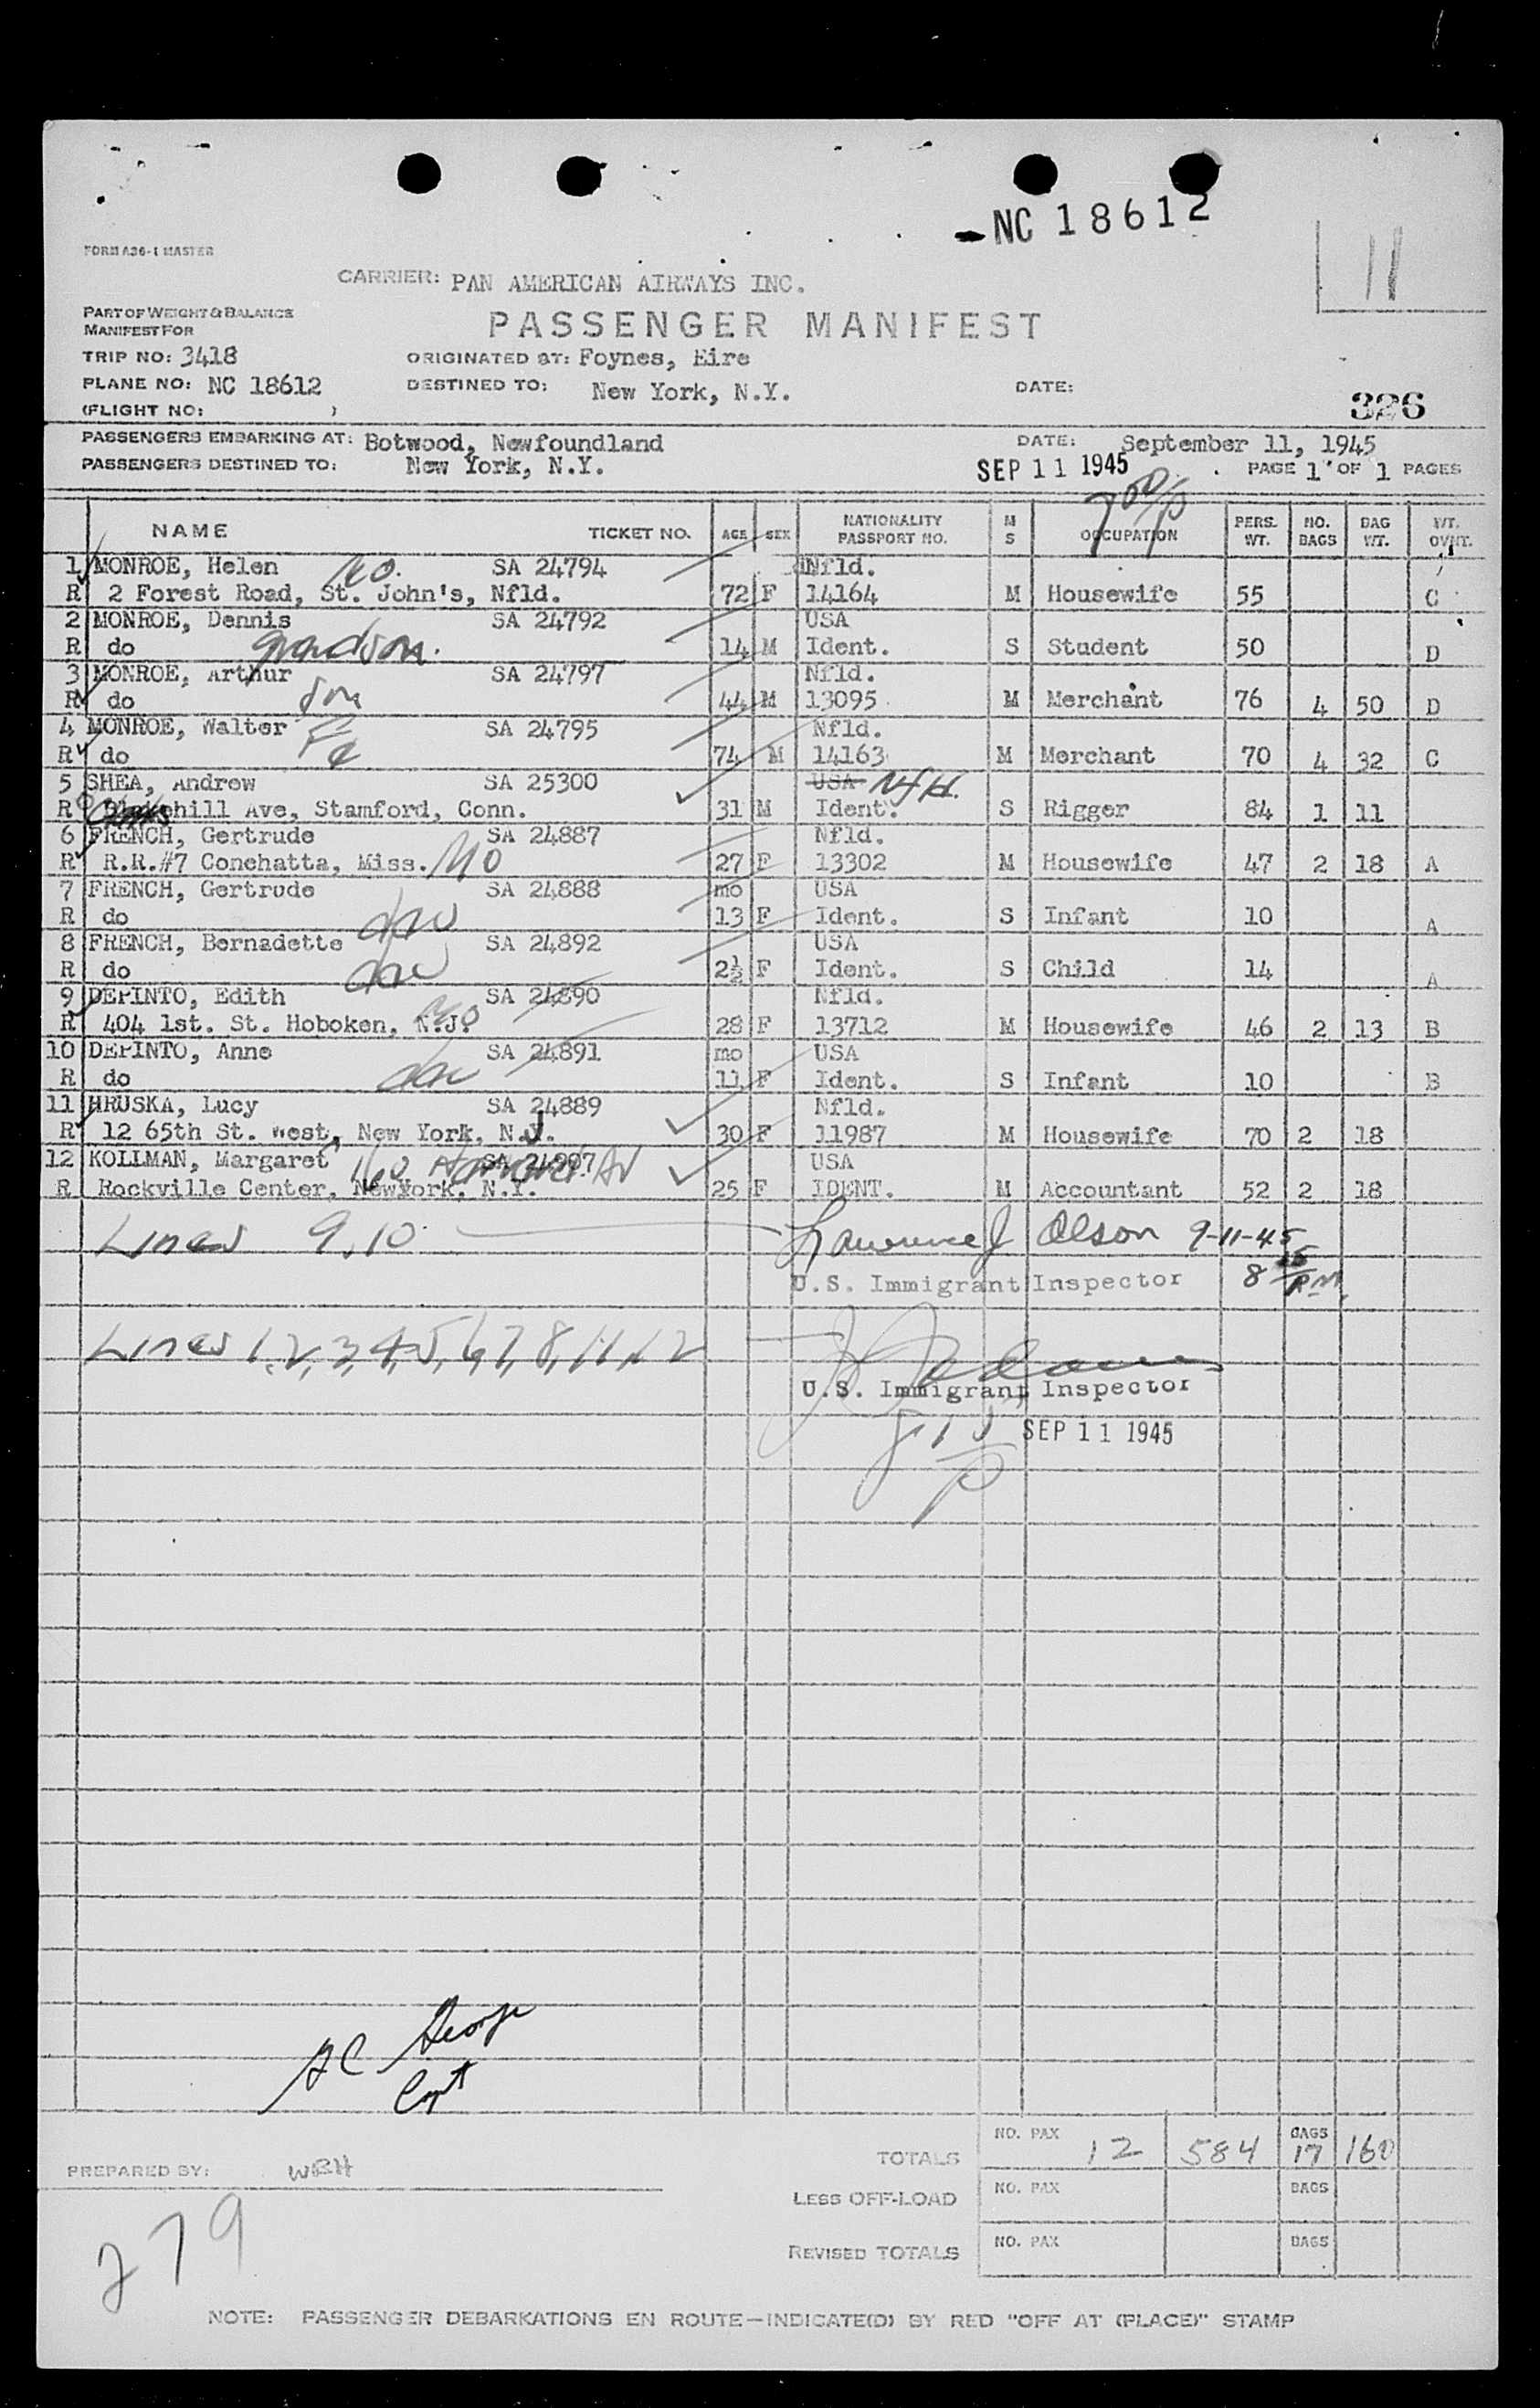 NC 18612
FORM A36-1 MASTER
11
CARRIER: PAN AMERICAN AIRWAYS INC.
PART OF WEIGHT & BALANCE
MANIFEST FOR
PASSENGER MANIFEST
TRIP NO: 3418 ORIGINATED AT: Foynes, Eire
PLANE NO: NC 18612 DESTINED TO: New York, N.Y. DATE:
(FLIGHT NO: )
326
PASSENGERS EMBARKING AT: Botwood, Newfoundland DATE: September 11, 1945
PASSENGERS DESTINED TO: New York, N.Y. SEP 11 1945 PAGE 1 OF 1 PAGES
7 00/P
NAME TICKET NO. AGE SEX NATIONALITY PASSPORT NO. M S OCCUPATION PERS. WT. NO. BAGS BAG WT. WT. OVNT.
1 MONROE, Helen Mo. SA 24794 Nfld.
R 2 Forest Road, St. John's, Nfld. 72 F 14164 M Housewife 55 C
2 MONROE, Dennis SA 24792 USA
R do grandson. 14 M Ident. S Student 50 D
3 MONROE, Arthur SA 24797 Nfld.
R do son 44 M 13095 M Merchant 76 4 50 D
4 MONROE, Walter Fa SA 24795 Nfld.
R do 74 M 14163 M Merchant 70 4 32 C
5 SHEA, Andrew SA 25300 USA Nfld.
R hill Ave, Stamford, Conn. 31 M Ident. S Rigger 84 1 11
6 FRENCH, Gertrude SA 24887 Nfld.
R R.R.#7 Conehatta, Miss. Mo 27 F 13302 M Housewife 47 2 18 A
7 FRENCH, Gertrude SA 24888 mo USA
R do dau 13 F Ident. S Infant 10 A
8 FRENCH, Bernadette SA 24892 USA
R do dau 2½ F Ident. S Child 14 A
9 DEPINTO, Edith SA 24890 Nfld.
R 404 1st. St. Hoboken, N.J. Mo 28 F 13712 M Housewife 46 2 13 B
10 DEPINTO, Anne SA 24891 mo USA
R do dau 11 F Ident. S Infant 10 B
11 HRUSKA, Lucy SA 24889 Nfld.
R 12 65th St. West, New York, N.J. 30 F 11987 M Housewife 70 2 18
12 KOLLMAN, Margaret 160 Av SA 24907 USA
R Rockville Center, NewYork, N.Y. 25 F IDENT. M Accountant 52 2 18
Lines 9, 10 Lawrence J Olson 9-11-45
U.S. Immigrant Inspector 8 15 PM.
Lines 1, 2, 3, 4, 5, 6, 7, 8, 11, 12
U.S. Immigrant Inspector
SEP 11 1945
AC George
Capt
TOTALS NO. PAX 12 584 BAGS 17 160
PREPARED BY: WBH
LESS OFF-LOAD NO. PAX BAGS
279
REVISED TOTALS NO. PAX BAGS
NOTE: PASSENGER DEBARKATIONS EN ROUTE—INDICATE(D) BY RED "OFF AT (PLACE)" STAMP